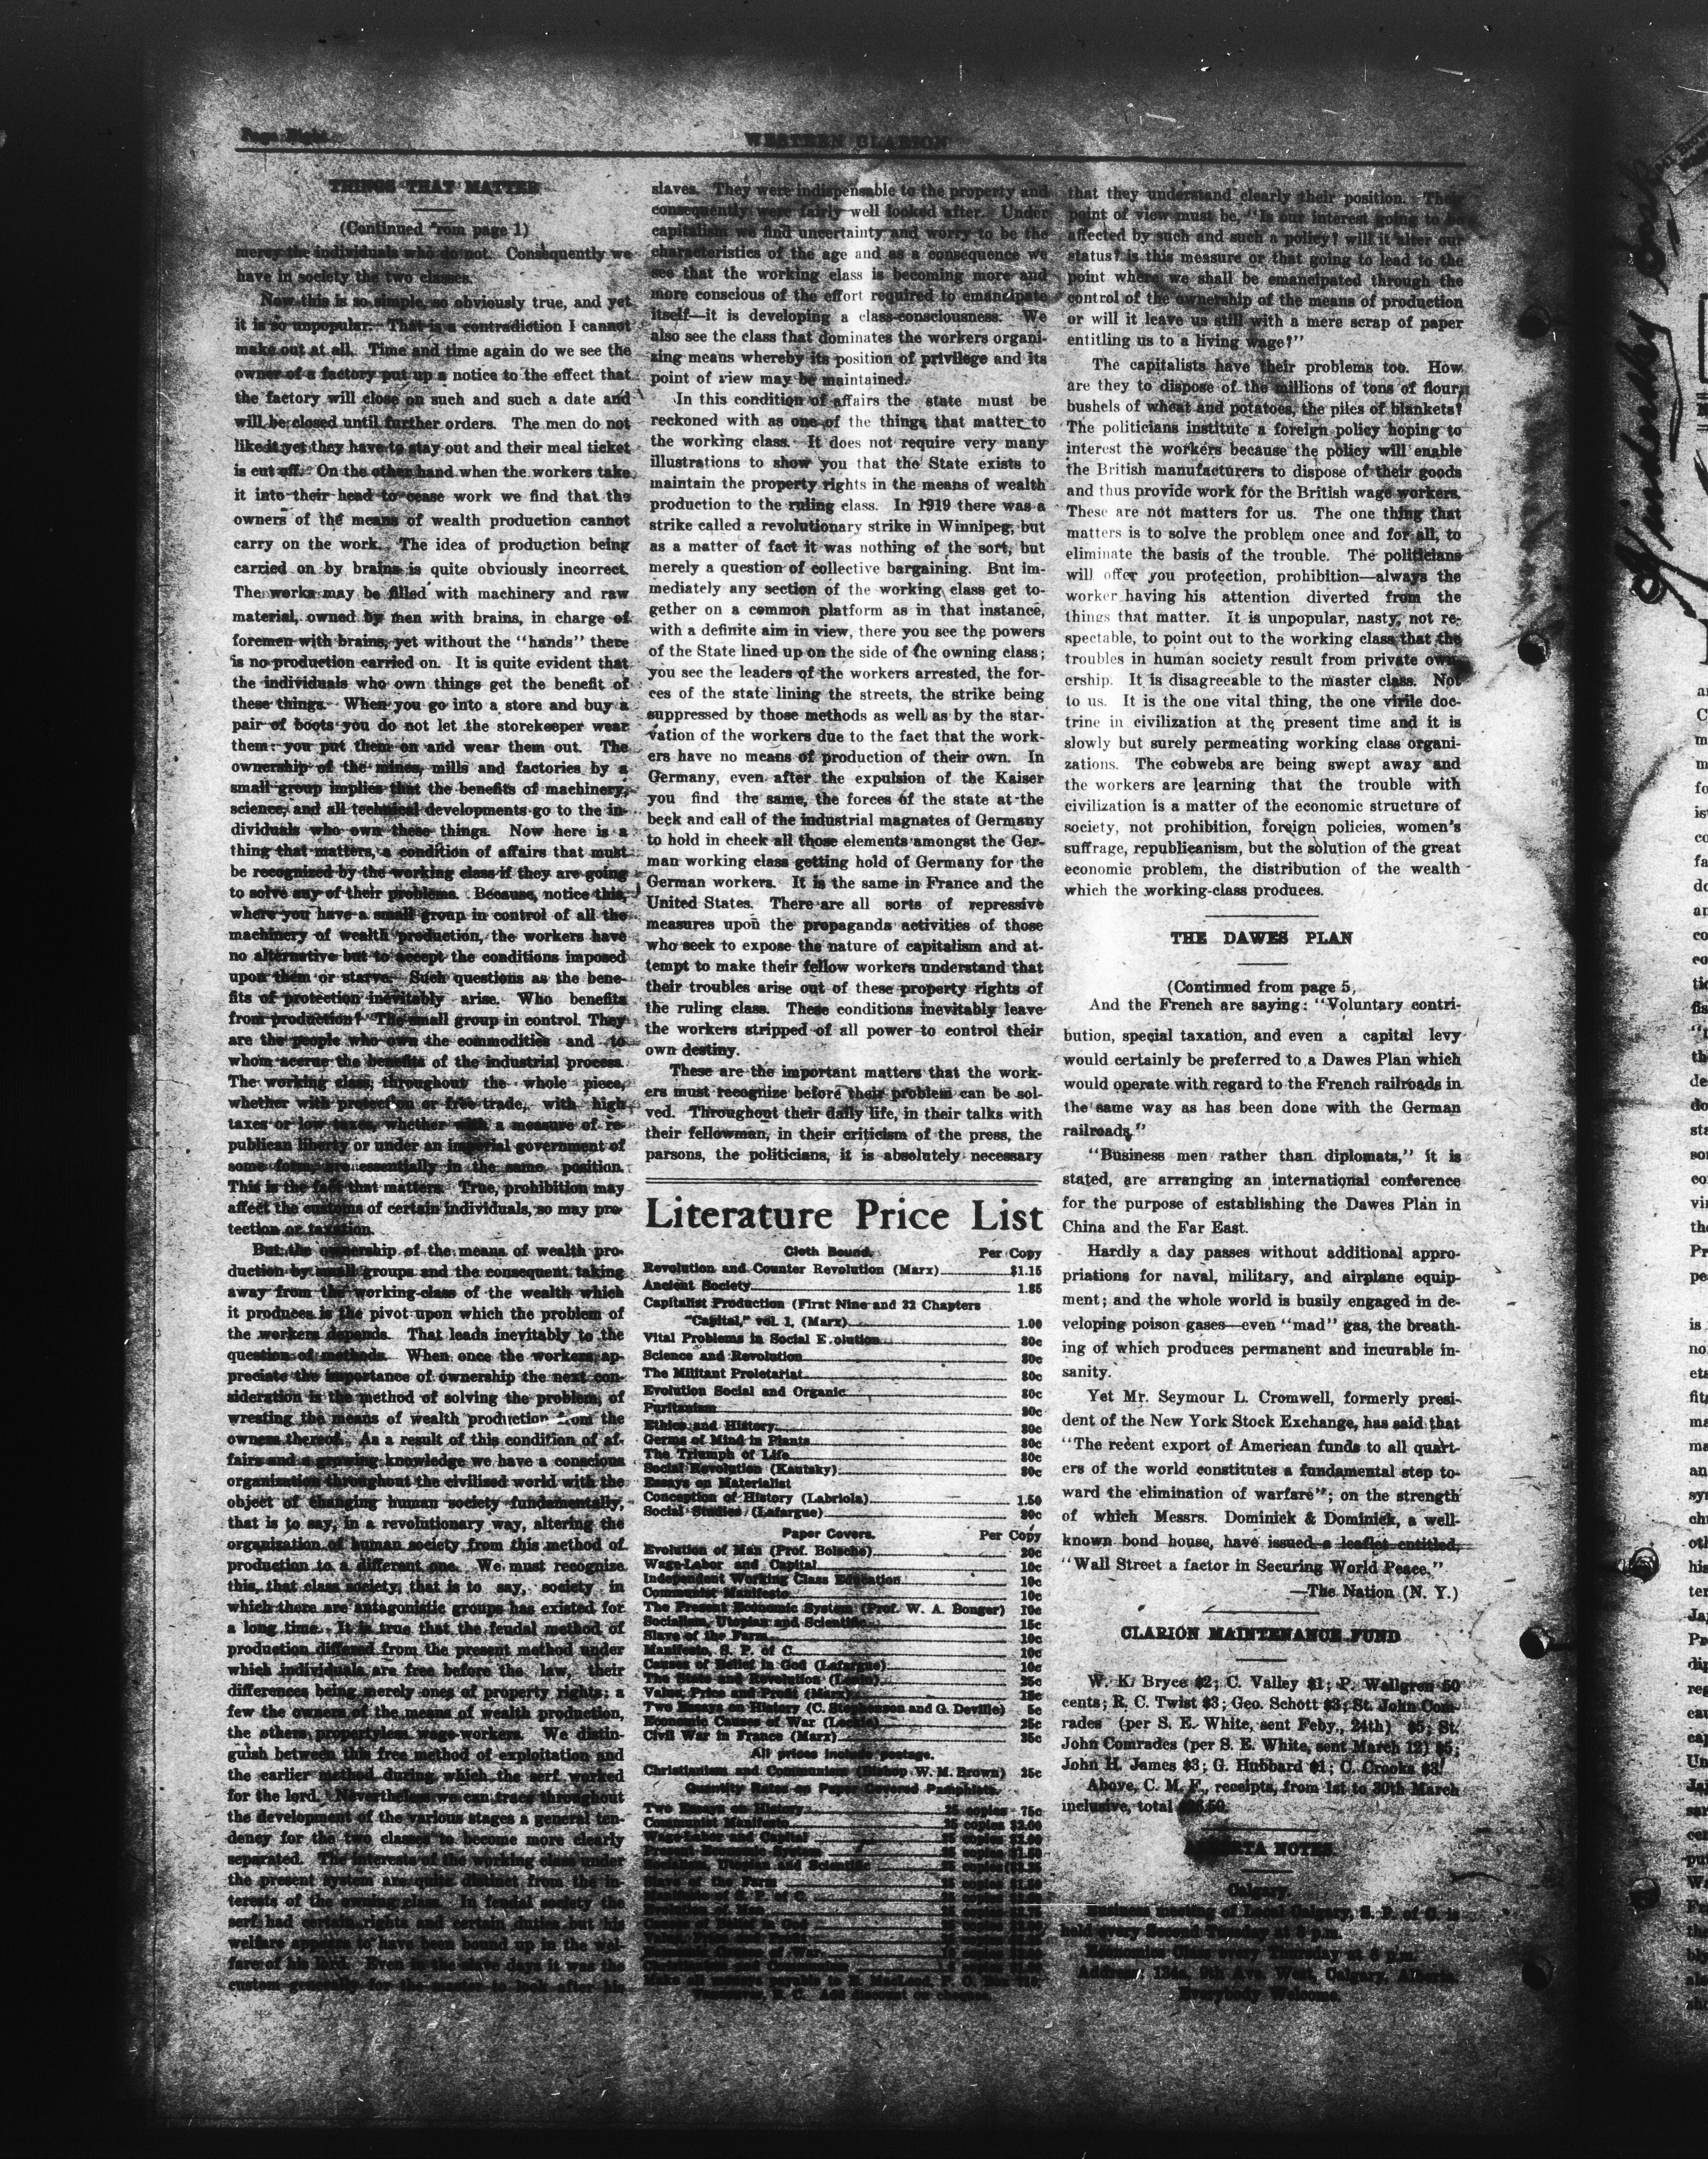 Page Eight
WESTERN CLARION
THINGS THAT MATTER
(Continued from page 1)
mercy the individuals who do not. Consequently we
have in society the two classes.
Now this is so simple, so obviously true, and yet
it is so unpopular. That is a contradiction I cannot
make out at all. Time and time again do we see the
owner of a factory put up a notice to the effect that
the factory will close on such and such a date and
will be closed until further orders. The men do not
like it yet they have to stay out and their meal ticket
is cut off. On the other hand when the workers take
it into their head to cease work we find that the
owners of the means of wealth production cannot
carry on the work. The idea of production being
carried on by brains is quite obviously incorrect.
The works may be filled with machinery and raw
material, owned by men with brains, in charge of
foremen with brains, yet without the "hands" there
is no production carried on. It is quite evident that
the individuals who own things get the benefit of
these things. When you go into a store and buy a
pair of boots you do not let the storekeeper wear
them: you put them on and wear them out. The
ownership of the mines, mills and factories by a
small group implies that the benefits of machinery,
science, and all technical developments go to the in-
dividuals who own these things. Now here is a
thing that matters, a condition of affairs that must
be recognized by the working class if they are going
to solve any of their problems. Because, notice this,
where you have a small group in control of all the
machinery of wealth production, the workers have
no alternative but to accept the conditions imposed
upon them or starve. Such questions as the bene-
fits of protection inevitably arise. Who benefits
from production? The small group in control. They
are the people who own the commodities and to
whom accrue the benefits of the industrial process.
The working class, throughout the whole piece,
whether with protection or free trade, with high
taxes or low taxes, whether with a measure of re-
publican liberty or under an imperial government of
some form, are essentially in the same position.
This is the fact that matters. True, prohibition may
affect the customs of certain individuals, so may pro-
tection or taxation.
But the ownership of the means of wealth pro-
duction by small groups and the consequent taking
away from the working-class of the wealth which
it produces is the pivot upon which the problem of
the workers depends. That leads inevitably to the
question of methods. When once the workers ap-
preciate the importance of ownership the next con-
sideration is the method of solving the problem, of
wresting the means of wealth production from the
owners thereof. As a result of this condition of af-
fairs and a growing knowledge we have a conscious
organization throughout the civilised world with the
object of changing human society fundamentally,
that is to say, in a revolutionary way, altering the
organization of human society from this method of
production to a different one. We must recognize
this, that class society, that is to say, society in
which there are antagonistic groups has existed for
a long time. It is true that the feudal method of
production differed from the present method under
which individuals are free before the law, their
differences being merely ones of property rights; a
few the owners of the means of wealth production,
the others propertyless wage-workers. We distin-
guish between this free method of exploitation and
the earlier method during which the serf worked
for the lord. Nevertheless we can trace throughout
the development of the various stages a general ten-
dency for the two classes to become more clearly
separated. The interests of the working class under
the present system are quite distinct from the in-
terests of the owning class. In feudal society the
serf had certain rights and certain duties but his
welfare appears to have been bound up in the wel-
fare of his lord. Even in the slave days it was the
custom generally for the master to look after his
slaves. They were indispensable to the property and
consequently were fairly well looked after. Under
capitalism we find uncertainty and worry to be the
characteristics of the age and as a consequence we
see that the working class is becoming more and
more conscious of the effort required to emancipate
itself—it is developing a class-consciousness. We
also see the class that dominates the workers organi-
zing means whereby its position of privilege and its
point of view may be maintained.
In this condition of affairs the state must be
reckoned with as one of the things that matter to
the working class. It does not require very many
illustrations to show you that the State exists to
maintain the property rights in the means of wealth
production to the ruling class. In 1919 there was a
strike called a revolutionary strike in Winnipeg, but
as a matter of fact it was nothing of the sort, but
merely a question of collective bargaining. But im-
mediately any section of the working class get to-
gether on a common platform as in that instance,
with a definite aim in view, there you see the powers
of the State lined up on the side of the owning class;
you see the leaders of the workers arrested, the for-
ces of the state lining the streets, the strike being
suppressed by those methods as well as by the star-
vation of the workers due to the fact that the work-
ers have no means of production of their own. In
Germany, even after the expulsion of the Kaiser
you find the same, the forces of the state at the
beck and call of the industrial magnates of Germany
to hold in check all those elements amongst the Ger-
man working class getting hold of Germany for the
German workers. It is the same in France and the
United States. There are all sorts of repressive
measures upon the propaganda activities of those
who seek to expose the nature of capitalism and at-
tempt to make their fellow workers understand that
their troubles arise out of these property rights of
the ruling class. These conditions inevitably leave
the workers stripped of all power to control their
own destiny.
These are the important matters that the work-
ers must recognize before their problem can be sol-
ved. Throughout their daily life, in their talks with
their fellowman, in their criticism of the press, the
parsons, the politicians, it is absolutely necessary
Literature Price List
Cloth Bound. Per Copy
Revolution and Counter Revolution (Marx) $1.15
Ancient Society 1.85
Capitalist Production (First Nine and 32 Chapters
"Capital," vol. 1, (Marx) 1.00
Vital Problems in Social E olution 80c
Science and Revolution 80c
The Militant Proletariat 80c
Evolution Social and Organic 80c
Puritanism 80c
Ethics and History 80c
Germs of Mind in Plants 80c
The Triumph of Life 80c
Social Revolution (Kautsky) 80c
Essays on Materialist
Conception of History (Labriola) 1.50
Social Studies (Lafargue) 80c
Paper Covers. Per Copy
Evolution of Man (Prof. Bolsche) 20c
Wage-Labor and Capital 10c
Independent Working Class Education 10c
Communist Manifesto 10c
The Present Economic System (Prof. W. A. Bonger) 10c
Socialism, Utopian and Scientific 15c
Slave of the Farm 10c
Manifesto, S. P. of C. 10c
Causes of Belief in God (Lafargue) 10c
The State and Revolution (Lenin) 25c
Value, Price and Profit (Marx) 15c
Two Essays on History (C. Stephenson and G. Deville) 5c
Economic Causes of War (Leckie) 25c
Civil War in France (Marx) 35c
All prices include postage.
Christianism and Communism (Bishop W. M. Brown) 25c
Quantity Rates on Paper Covered Pamphlets.
Two Essays on History 25 copies 75c
Communist Manifesto 25 copies $2.00
Wage-Labor and Capital 25 copies $2.00
Present Economic System 25 copies $1.50
Socialism, Utopian and Scientific 25 copies
Slave of the Farm 25 copies $1.50
Manifesto of S. P. of C. 25 copies
Evolution of Man
Causes of Belief in God
Value, Price and Profit
Economic Causes of War
Christianism and Communism
Make all moneys payable to E. MacLeod, P. O. Box 710,
Vancouver, B. C. Add discount on cheques.
that they understand clearly their position. Their
point of view must be, "Is our interest going to be
affected by such and such a policy? will it alter our
status? is this measure or that going to lead to the
point where we shall be emancipated through the
control of the ownership of the means of production
or will it leave us still with a mere scrap of paper
entitling us to a living wage?"
The capitalists have their problems too. How
are they to dispose of the millions of tons of flour,
bushels of wheat and potatoes, the piles of blankets?
The politicians institute a foreign policy hoping to
interest the workers because the policy will enable
the British manufacturers to dispose of their goods
and thus provide work for the British wage workers.
These are not matters for us. The one thing that
matters is to solve the problem once and for all, to
eliminate the basis of the trouble. The politicians
will offer you protection, prohibition—always the
worker having his attention diverted from the
things that matter. It is unpopular, nasty, not re-
spectable, to point out to the working class that the
troubles in human society result from private own-
ership. It is disagreeable to the master class. Not
to us. It is the one vital thing, the one virile doc-
trine in civilization at the present time and it is
slowly but surely permeating working class organi-
zations. The cobwebs are being swept away and
the workers are learning that the trouble with
civilization is a matter of the economic structure of
society, not prohibition, foreign policies, women's
suffrage, republicanism, but the solution of the great
economic problem, the distribution of the wealth
which the working-class produces.
THE DAWES PLAN
(Continued from page 5,
And the French are saying: "Voluntary contri-
bution, special taxation, and even a capital levy
would certainly be preferred to a Dawes Plan which
would operate with regard to the French railroads in
the same way as has been done with the German
railroads."
"Business men rather than diplomats," it is
stated, are arranging an international conference
for the purpose of establishing the Dawes Plan in
China and the Far East.
Hardly a day passes without additional appro-
priations for naval, military, and airplane equip-
ment; and the whole world is busily engaged in de-
veloping poison gases—even "mad" gas, the breath-
ing of which produces permanent and incurable in-
sanity.
Yet Mr. Seymour L. Cromwell, formerly presi-
dent of the New York Stock Exchange, has said that
"The recent export of American funds to all quart-
ers of the world constitutes a fundamental step to-
ward the elimination of warfare"; on the strength
of which Messrs. Dominick & Dominick, a well-
known bond house, have issued a leaflet entitled,
"Wall Street a factor in Securing World Peace."
—The Nation (N. Y.)
CLARION MAINTENANCE FUND
W. K. Bryce $2; C. Valley $1; P. Wallgren 50
cents; R. C. Twist $3; Geo. Schott $3; St. John Com-
rades (per S. E. White, sent Feby., 24th) $5; St.
John Comrades (per S. E. White, sent March 12) $5;
John H. James $3; G. Hubbard $1; C. Crooks $3.
Above, C. M. F., receipts, from 1st to 30th March
inclusive, total
ALBERTA NOTES.
Calgary.
Business meeting of Local Calgary, S. P. of C. is
held every Second Tuesday at 8 p.m.
Economics Class every Thursday at 8 p.m.
Address: 134a, 9th Ave. West, Calgary, Alberta.
Everybody Welcome.